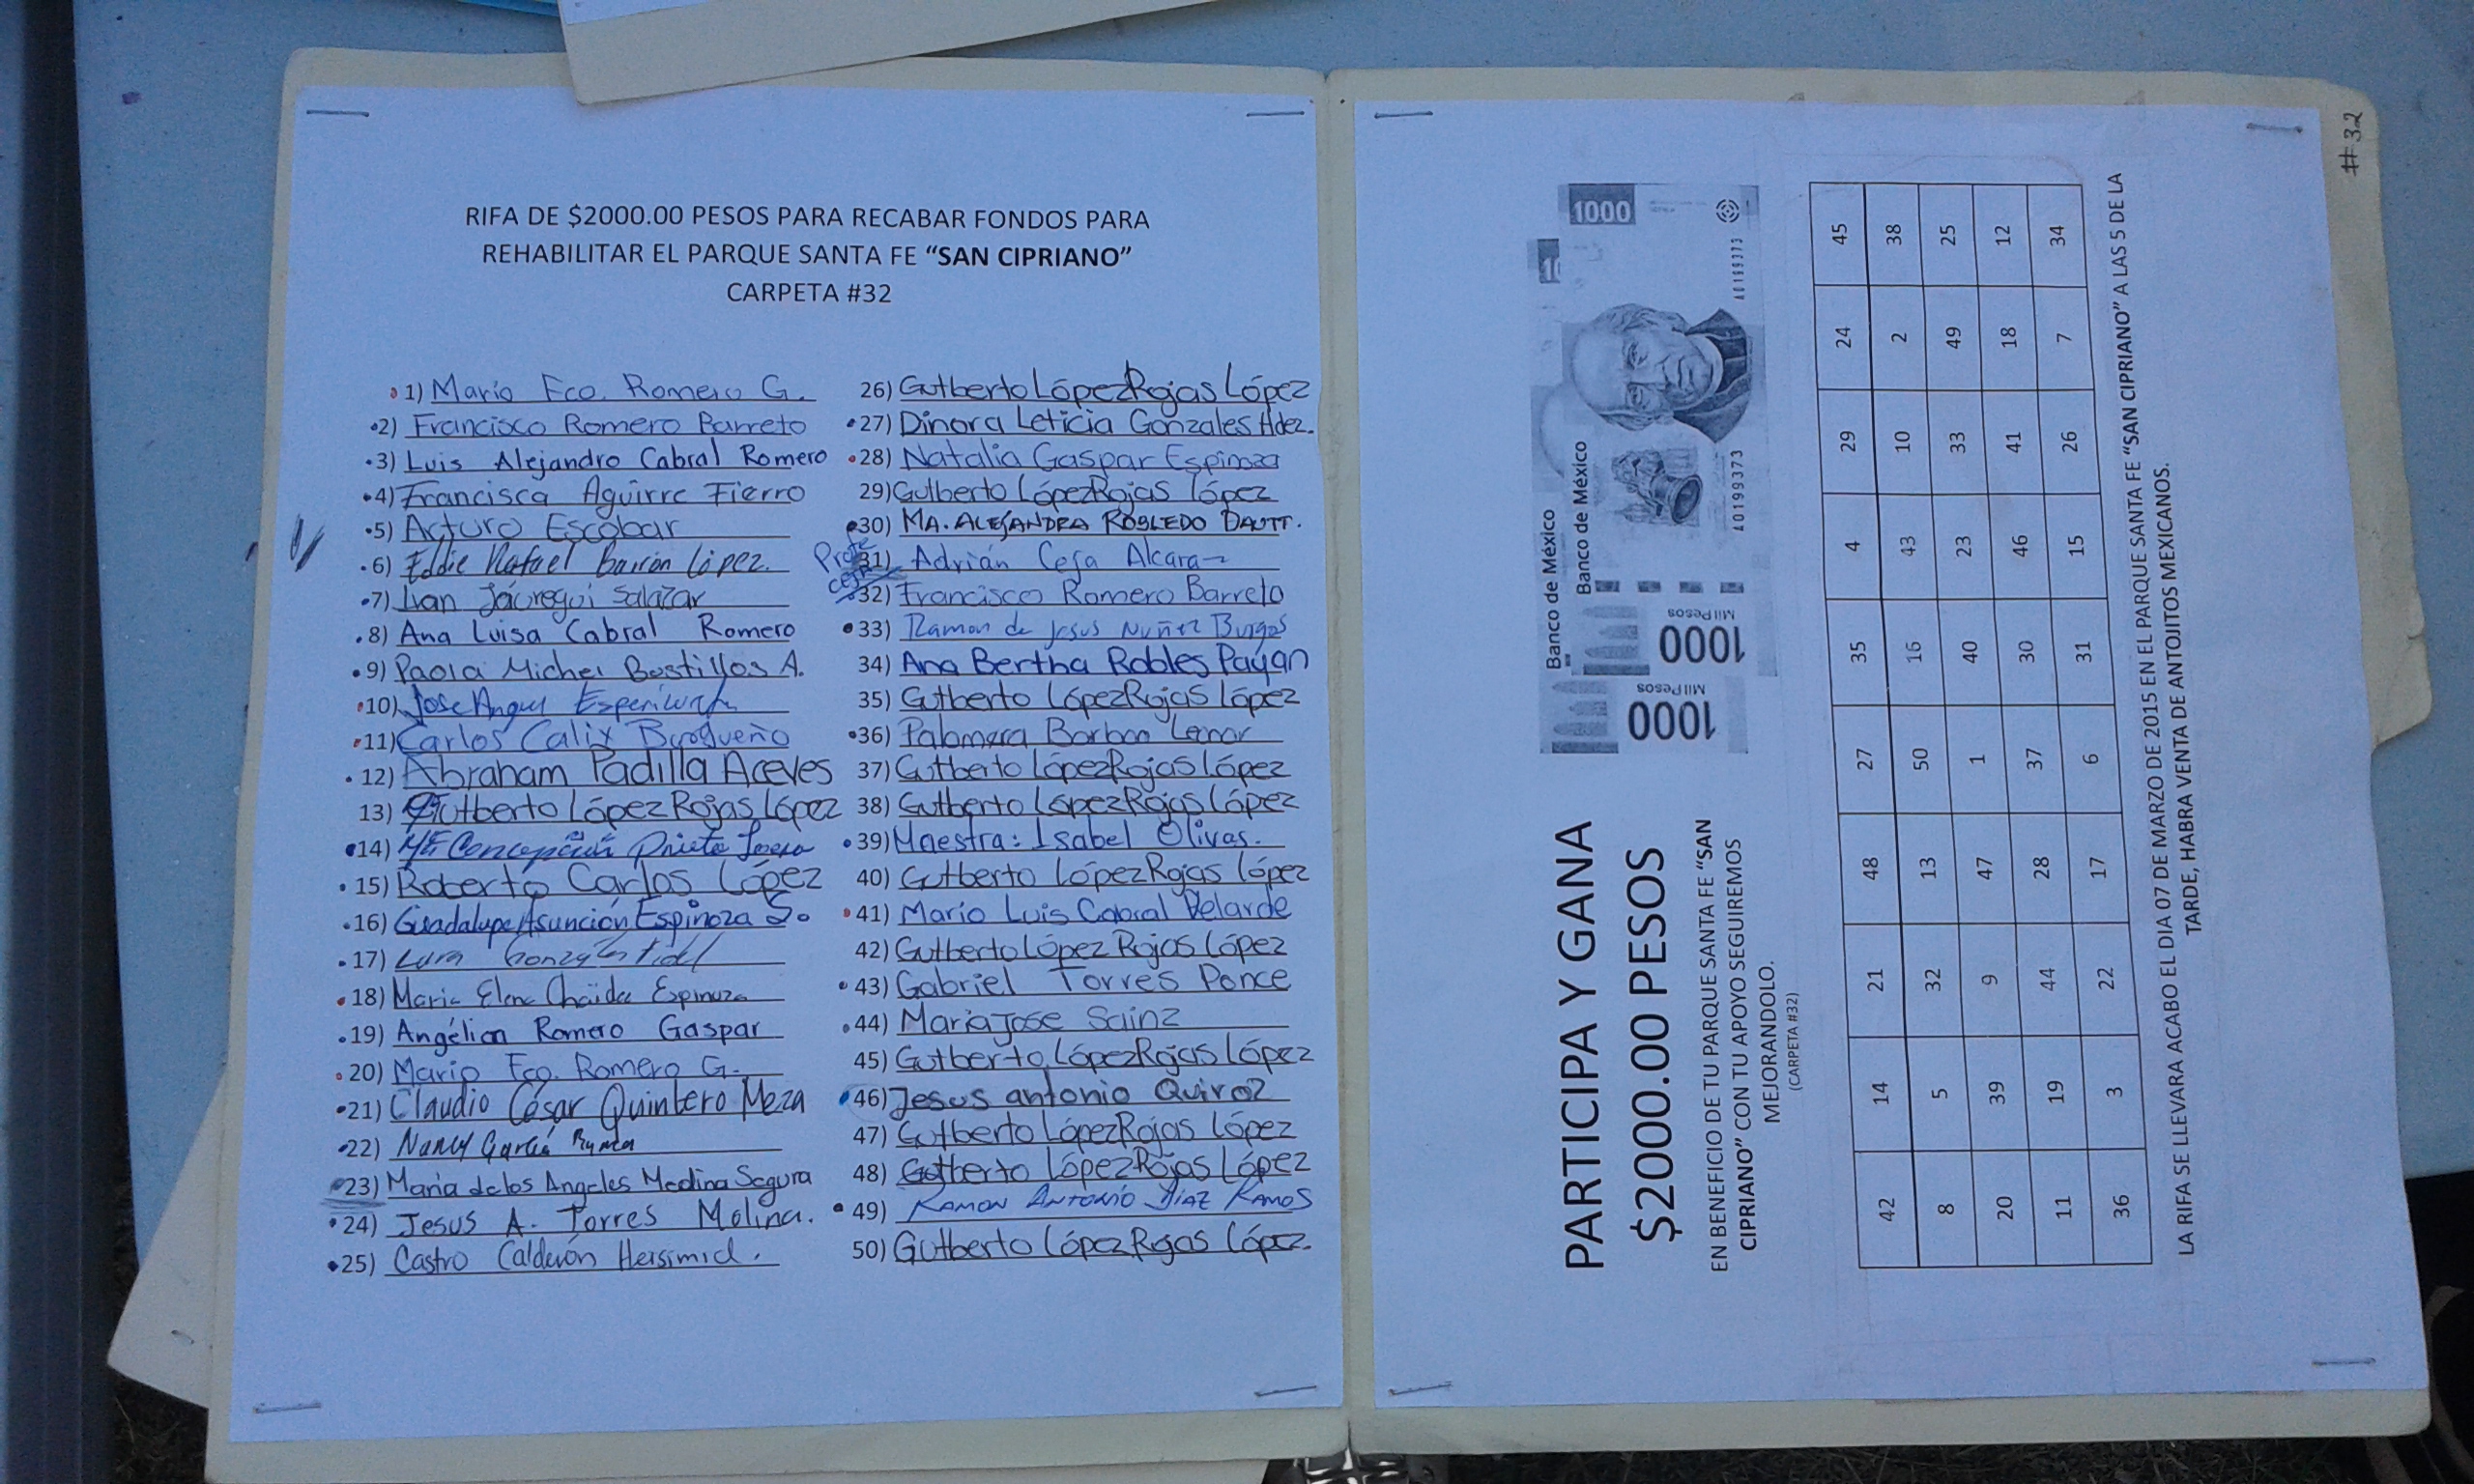 RIFA DE $2000.00 PESOS PARA RECABAR FONDOS PARA
REHABILITAR EL PARQUE SANTA FE “SAN CIPRIANO”
CARPETA #32
1) Mario Fco. Romero G.
2) Francisco Romero Barreto
3) Luis Alejandro Cabral Romero
4) Francisca Aguirre Fierro
5) Arturo Escobar
6) Eddie Rafael Barrón López.
7) Ivan Jáuregui Salazar
8) Ana Luisa Cabral Romero
9) Paola Michel Bustillos A.
10) Jose Angel
11) Carlos Calix
12) Abraham Padilla Aceves
13) Gutberto López Rojas López
14) Mª Concepción Prieto
15) Roberto Carlos López
16) Guadalupe Asunción Espinoza S.
17)
18) Maria Elena Chaidez Espinoza
19) Angélica Romero Gaspar
20) Mario Fco. Romero G.
21) Claudio César Quintero Meza
22) Nancy García
23) Maria de los Angeles Medina Segura
24) Jesus A. Torres Molina.
25) Castro Calderón
26) Gutberto López Rojas López
27) Dinora Leticia Gonzales Hdez.
28) Natalia Gaspar Espinoza
29) Gutberto López Rojas López
30) MA. ALEJANDRA ROBLEDO DAUTT.
Profe
Ceja
31) Adrián Ceja Alcaraz
32) Francisco Romero Barreto
33) Ramon de Jesus Nuñez Burgos
34) Ana Bertha Robles Payan
35) Gutberto López Rojas López
36) Palomera Borbon Leonor
37) Gutberto López Rojas López
38) Gutberto López Rojas López
39) Maestra: Isabel Olivas.
40) Gutberto López Rojas López
41) Mario Luis Cabral Velarde
42) Gutberto López Rojas López
43) Gabriel Torres Ponce
44) Maria Jose Sainz
45) Gutberto López Rojas López
46) Jesus antonio Quiroz
47) Gutberto López Rojas López
48) Gutberto López Rojas López
49) RAMON ANTONIO DIAZ RAMOS
50) Gutberto López Rojas López.
#32
PARTICIPA Y GANA
$2000.00 PESOS
EN BENEFICIO DE TU PARQUE SANTA FE “SAN
CIPRIANO” CON TU APOYO SEGUIREMOS
MEJORANDOLO.
(CARPETA #32)
Banco de México
Banco de México
1000
1000
1000
Mil Pesos
Mil Pesos
A0199373
A0199373
42 14 21 48 27 35 4 29 24 45
8 5 32 13 50 16 43 10 2 38
20 39 9 47 1 40 23 33 49 25
11 19 44 28 37 30 46 41 18 12
36 3 22 17 6 31 15 26 7 34
LA RIFA SE LLEVARA ACABO EL DIA 07 DE MARZO DE 2015 EN EL PARQUE SANTA FE “SAN CIPRIANO” A LAS 5 DE LA
TARDE, HABRA VENTA DE ANTOJITOS MEXICANOS.